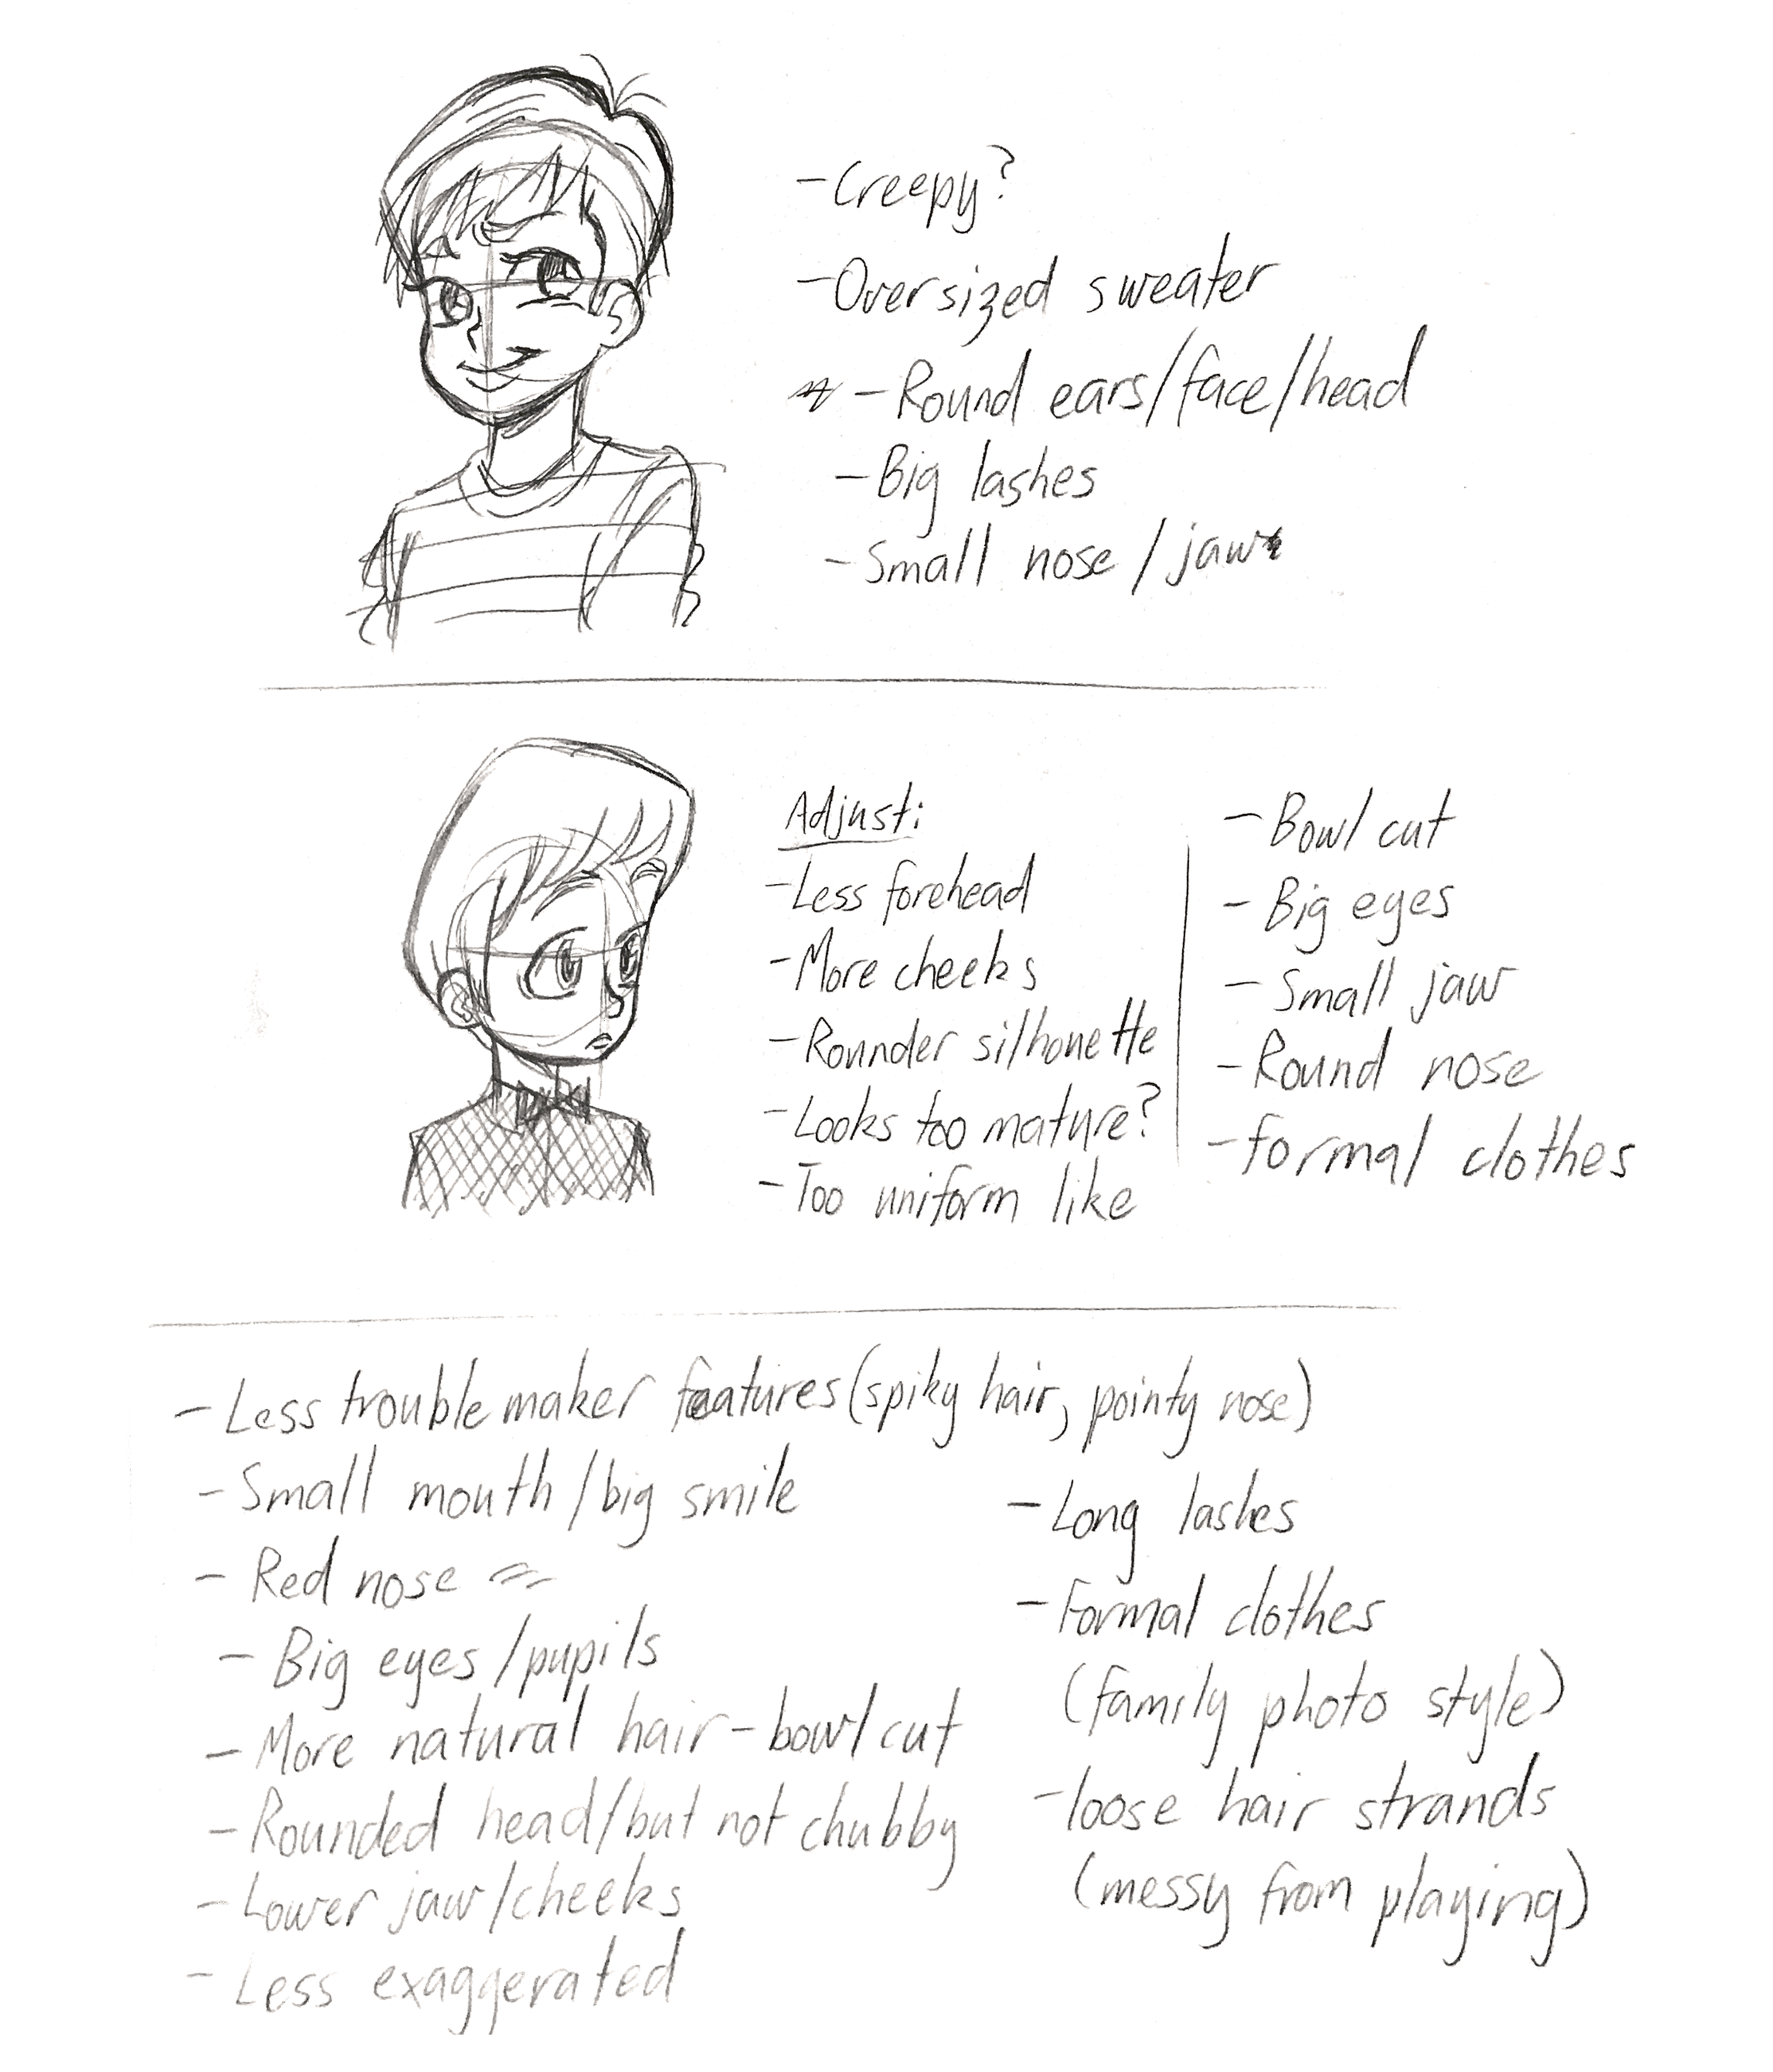 -Creepy?
-Oversized sweater
-Round ears/face/head
-Big lashes
-Small nose/jaw
Adjust:
-Less forehead
-More cheeks
-Rounder silhouette
-Looks too mature?
-Too uniform like
-Bowl cut
-Big eyes
-Small jaw
-Round nose
-formal clothes
-Less trouble maker features (spiky hair, pointy nose)
-Small mouth/big smile
-Red nose
-Big eyes/pupils
-More natural hair-bowl cut
-Rounded head/but not chubby
-Lower jaw/cheeks
-Less exaggerated
-Long lashes
-Formal clothes
(family photo style)
-loose hair strands
(messy from playing)